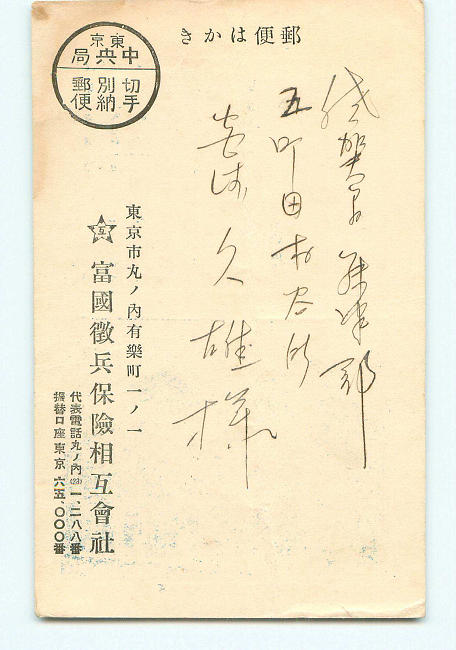 郵便はかき
佐賀県藤津郡
五町田村谷所
久雄様
東京
中央局
切手別納郵便
東京市丸ノ內有樂町一ノ一
富國徵兵保險相互會社
代表電話丸ノ內(23)一、二八八番
振替口座東京六五、〇〇〇番